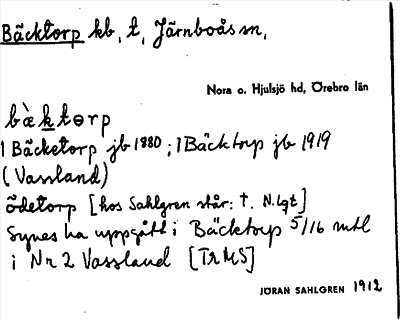 Bäcktorp kb, t, Järnboås sn,
Nora o. Hjulsjö hd, Örebro län
bæ̀ktɵrp
1 Bäcketorp jb 1880; 1 Bäcktorp jb 1919
(Vassland)
ödetorp [hos Sahlgren står: †. N. lgt]
Synes ha uppgått i Bäcktorp 5/16 mtl
i Nr 2 Vassland [TrMS]
JÖRAN SAHLGREN 1912